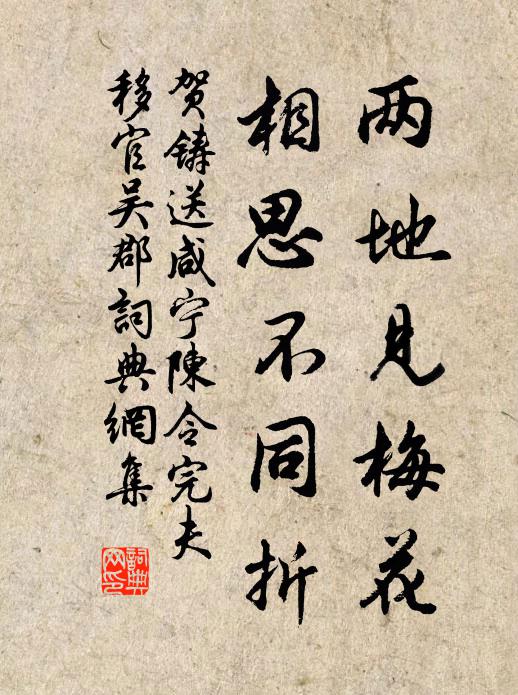 两地见梅花
相思不同折
贺铸送咸宁陳令完夫
移官吴郡詞典網集
詞典
网印